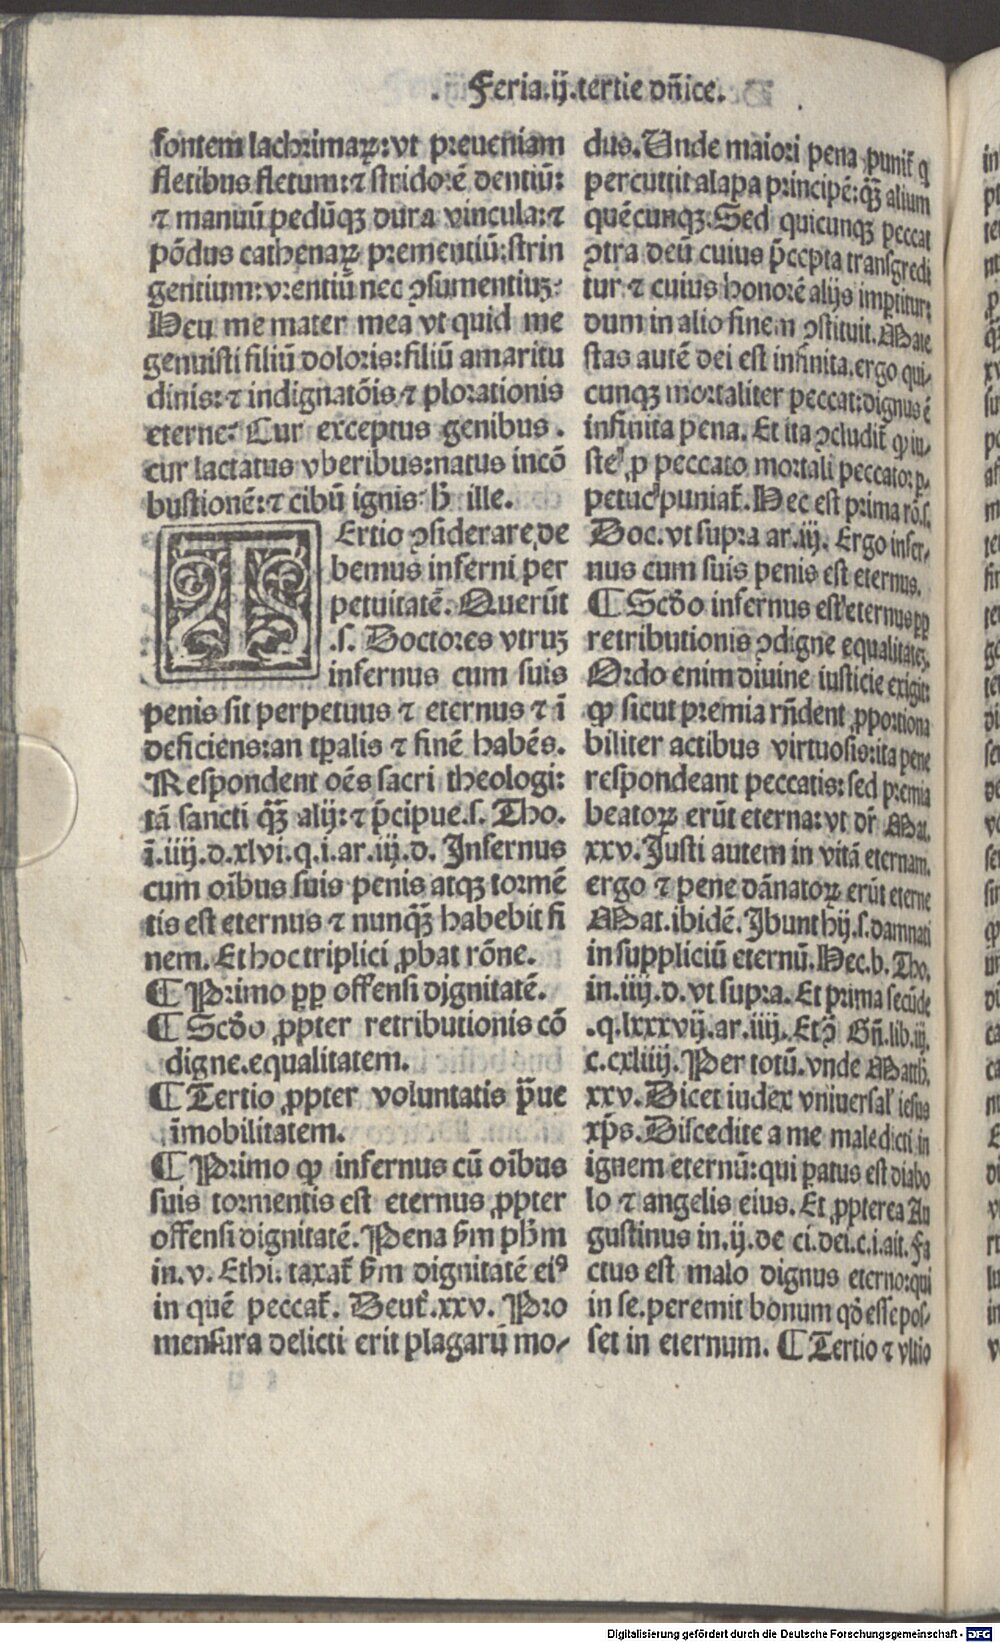 Feria.ij.tertie dñice.
fontem lachrimaꝝ:vt preueniam
fletibus fletum:⁊ stridorē dentiū:
⁊ manuū pedūqꝫ dura vincula:⁊
põdus cathenaꝝ prementiū:strin
gentium:vrentiū nec ꝯsumentiuꝫ:
Heu me mater mea vt quid me
genuisti filiū doloris:filiū amaritu
dinis:⁊ indignatõis ⁊ plorationis
eterne: Cur exceptus genibus.
cur lactatus vberibus:natus incõ
bustionē:⁊ cibū ignis: h̄ ille.
TErtio ꝯsiderare de
bemus inferni per
petuitatē. Querūt
.s. Doctores vtruꝫ
infernus cum suis
penis sit perpetuus ⁊ eternus ⁊ ī
deficiens:an tp̄alis ⁊ finē habēs.
Respondent oēs sacri theologi:
tā sancti qꝫ̄ alij:⁊ p̄cipue.s. Tho.
ī.iiij.d.xlvi.q.i.ar.iij.d. Infernus
cum oībus suis penis atqꝫ tormē
tis est eternus ⁊ nunqꝫ̄ habebit fi
nem. Et hoc triplici ꝓbat rõne.
¶ Primo ꝓp̄ offensi dignitatē.
¶ Scd̄o ꝓpter retributionis cõ
digne.equalitatem.
¶ Tertio ꝓpter voluntatis p̄ue
īmobilitatem.
¶ Primo ꝙ infernus cū oībus
suis tormentis est eternus ꝓpter
offensi dignitatē. Pena ẜm ph̄m
in.v. Ethi. taxat̄ ẜm dignitatē eiꝰ
in quē peccat̄. Deut̄.xxv. Pro
mensura delicti erit plagarū mo-
dus. Unde maiori pena punit̄ q
percuttit alapa principē:qꝫ̄ alium
quēcunqꝫ. Sed quicunqꝫ peccat
ꝯtra deū cuius p̄cepta transgredi
tur ⁊ cuius honorē alijs imꝑtitur:
dum in alio finem ꝯstituit. Maie
stas autē dei est infinita.ergo qui-
cunqꝫ mortaliter peccat:dignus ē
infinita pena. Et ita ꝯcludit̄ ꝙ iu-
ste ꝓ peccato mortali peccator ꝑ-
petuo puniat̄. Hec est prima rõ.s.
Doc. vt supra ar.iij. Ergo infer-
nus cum suis penis est eternus.
¶ Scd̄o infernus est eternus ꝓp̄
retributionis ꝯdigne equalitateꝫ.
Ordo enim diuine iusticie exigit:
ꝙ sicut premia rñdent ꝓportiona
biliter actibus virtuosis:ita pene
respondeant peccatis: sed premia
beatoꝝ erūt eterna: vt dr̄ Mat.
xxv. Justi autem in vitā eternam.
ergo ⁊ pene dānatoꝝ erūt eterne
Mat. ibidē. Ibunt hij.s.damnati
in suppliciū eternū. Hec.b. Tho.
in.iiij.d. vt supra. Et prima secūde
.q.lxxxvij.ar.iiij. Et ꝯ̄ Gñ.lib.iij.
c.cxliiij. Per totū. vnde Matth̄.
xxv. Dicet iudex vniuersal̄ iesus
xp̄s. Discedite a me maledicti in
ignem eternū:qui ꝑatus est diabo
lo ⁊ angelis eius. Et ꝓpterea Au
gustinus in.ij.de ci.dei.c.i.ait. Fa
ctus est malo dignus eterno:qui
in se.peremit bonum qd̄ esse pos-
set in eternum. ¶ Tertio ⁊ vltio
Digitalisierung gefördert durch die Deutsche Forschungsgemeinschaft - DFG